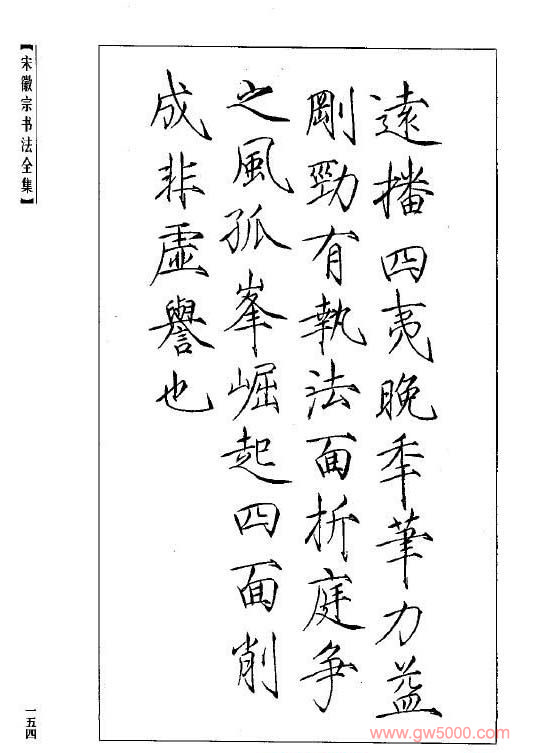 遠播四夷晚年筆力益
剛勁有執法面折庭争
之風孤峯崛起四面削
成非虛譽也
【宋徽宗书法全集】
一五四
www.gw5000.com